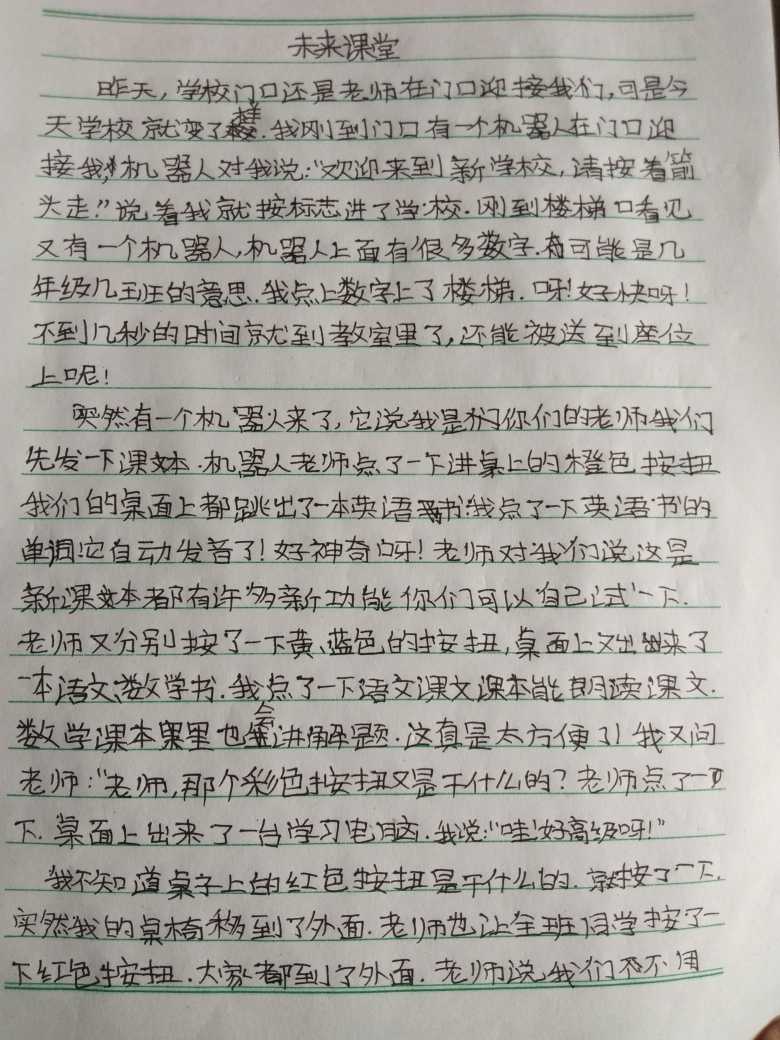 未来课堂
昨天,学校门口还是老师在门口迎接我们,可是今
天学校就变了样.我刚到门口有一个机器人在门口迎
接我,机器人对我说:“欢迎来到新学校,请按着箭
头走.”说着我就按标志进了学校.刚到楼梯口看见
又有一个机器人,机器人上面有很多数字.有可能是几
年级几班的意思.我点上数字上了楼梯.呀!好快呀!
不到几秒的时间就到教室里了,还能被送到座位
上呢!
突然有一个机器人来了,它说我是你们的老师我们
先发一下课本.机器人老师点了一下讲桌上的橙色按扭
我们的桌面上都跳出了一本英语书!我点了一下英语书的
单词!它自动发音了!好神奇呀!老师对我们说这是
新课本都有许多新功能你们可以自己试一下.
老师又分别按了一下黄、蓝色的按扭,桌面上又出来了
一本语文、数学书.我点了一下语文课文课本能朗读课文.
数学课本里也会讲解题.这真是太方便了!我又问
老师:“老师,那个彩色按扭又是干什么的?老师点了一
下.桌面上出来了一台学习电脑.我说:“哇!好高级呀!”
我不知道桌子上的红色按扭是干什么的.就按了一下.
突然我的桌椅移到了外面.老师也让全班同学按了一
下红色按扭.大家都到了外面.老师说,我们不用